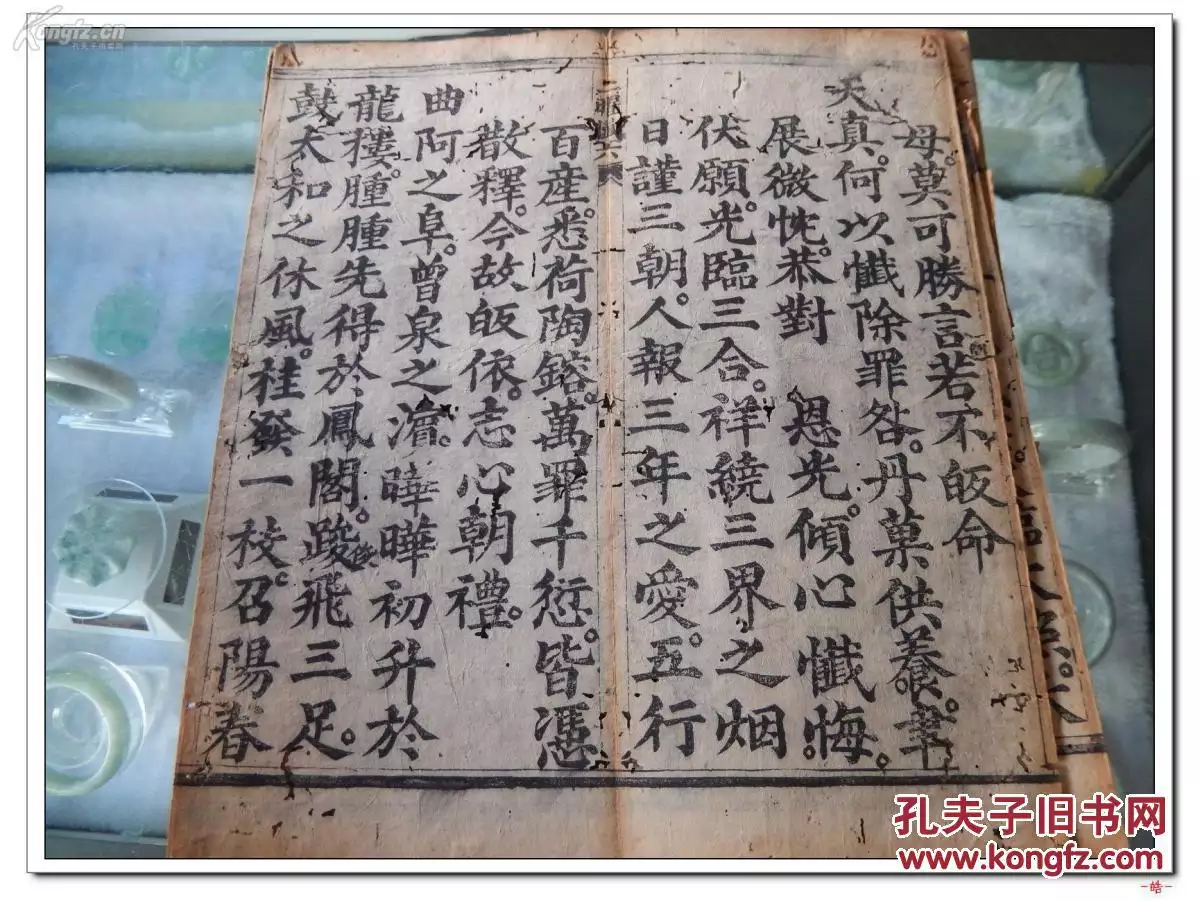 母。莫可勝言若不皈命
天真。何以懺除罪咎。丹菓供養。羣
展微忱。恭對 恩光。傾心懺悔。
伏願光臨三合。祥繞三界之烟
日謹三朝。人報三年之愛。五行
百産。悉荷陶鎔。萬罪千愆。皆憑
散釋。今故皈依。志心朝禮。
曲阿之阜。曾泉之濱。曄曄初升於
龍樓。腫腫先得於鳳閣。踆飛三足。
鼓太和之休風。桂發一枝。召陽春
Kongfz.cn
孔夫子旧书网
孔夫子旧书网
www.kongfz.com
-皓-